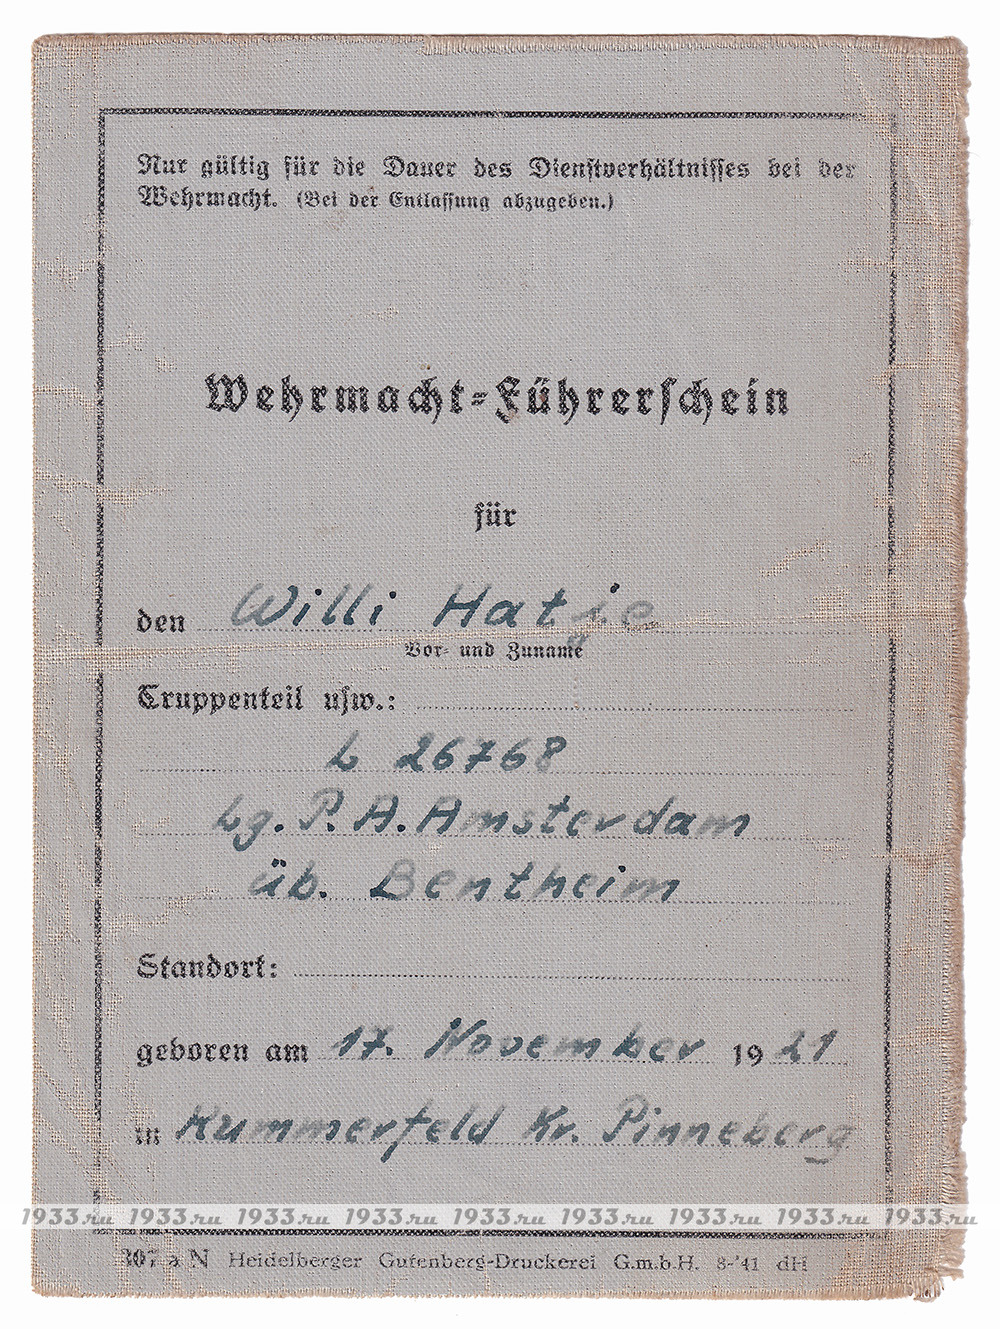 Nur gültig für die Dauer des Dienstverhältnisses bei der
Wehrmacht. (Bei der Entlassung abzugeben.)
Wehrmacht-Führerschein
für
den Willi Hatje
Vor- und Zuname
Truppenteil usw.:
L 26768
Lg. P. A. Amsterdam
üb. Bentheim
Standort:
geboren am 17. November 1921
in Kummerfeld Kr. Pinneberg
1933.ru 1933.ru 1933.ru 1933.ru 1933.ru 1933.ru 1933.ru 1933.ru 1933.ru
307 a N Heidelberger Gutenberg-Druckerei G.m.b.H. 8-'41 dH